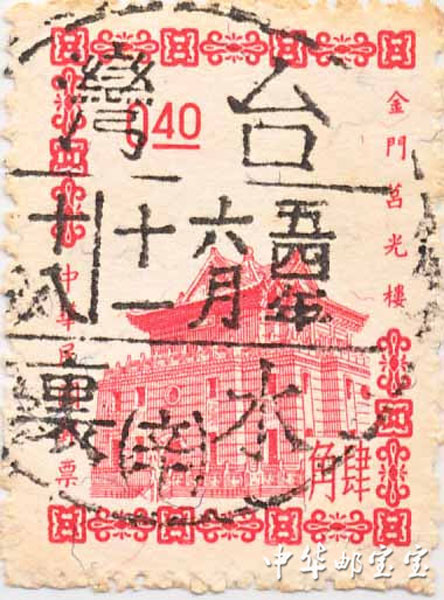 金門莒光樓
0.40
中華民
票
肆角
台灣
五四年
六月
十一
十八
水裏
(辛)
中华邮宝宝